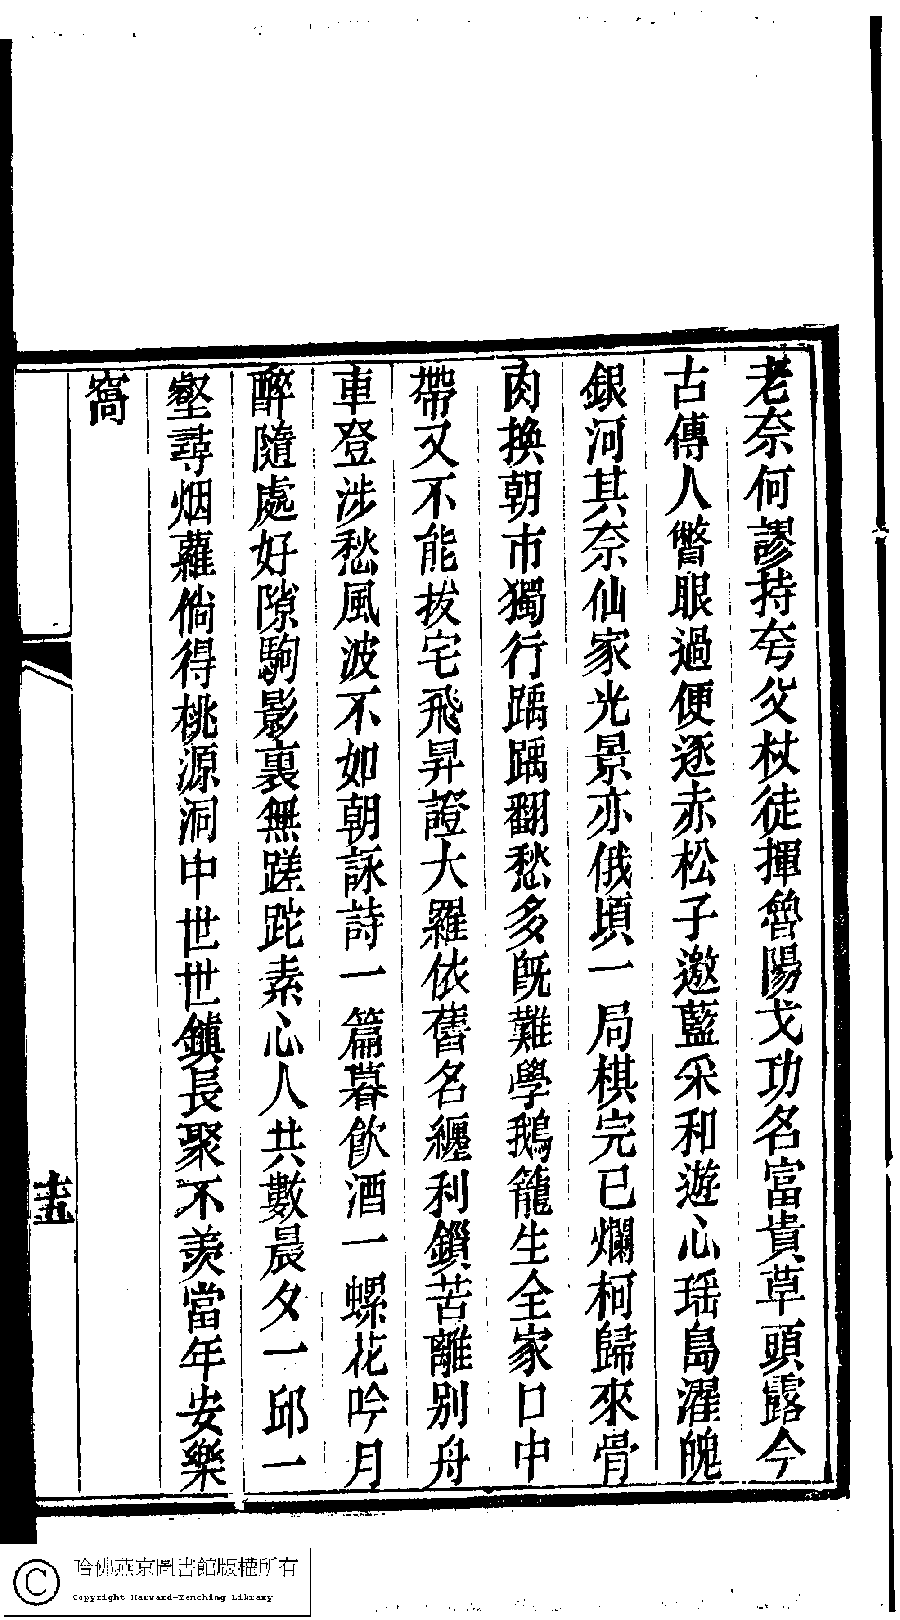 老奈何謬持夸父杖徒揮魯陽戈功名富貴草頭露今
古傳人瞥眼過便逐赤松子邀藍采和遊心瑶島濯魄
銀河其奈仙家光景亦俄頃一局棋完已爛柯歸來骨
肉換朝市獨行踽踽翻愁多既難學鵝籠生全家口中
帶又不能拔宅飛昇證大羅依舊名纏利鎖苦離别舟
車登涉愁風波不如朝詠詩一篇暮飲酒一螺花吟月
醉隨處好隙駒影裏無蹉跎素心人共數晨夕一邱一
壑尋烟蘿倘得桃源洞中世世鎮長聚不羡當年安樂
窩
十五
哈佛燕京圖書館版權所有
Copyright Harvard-Yenching Library